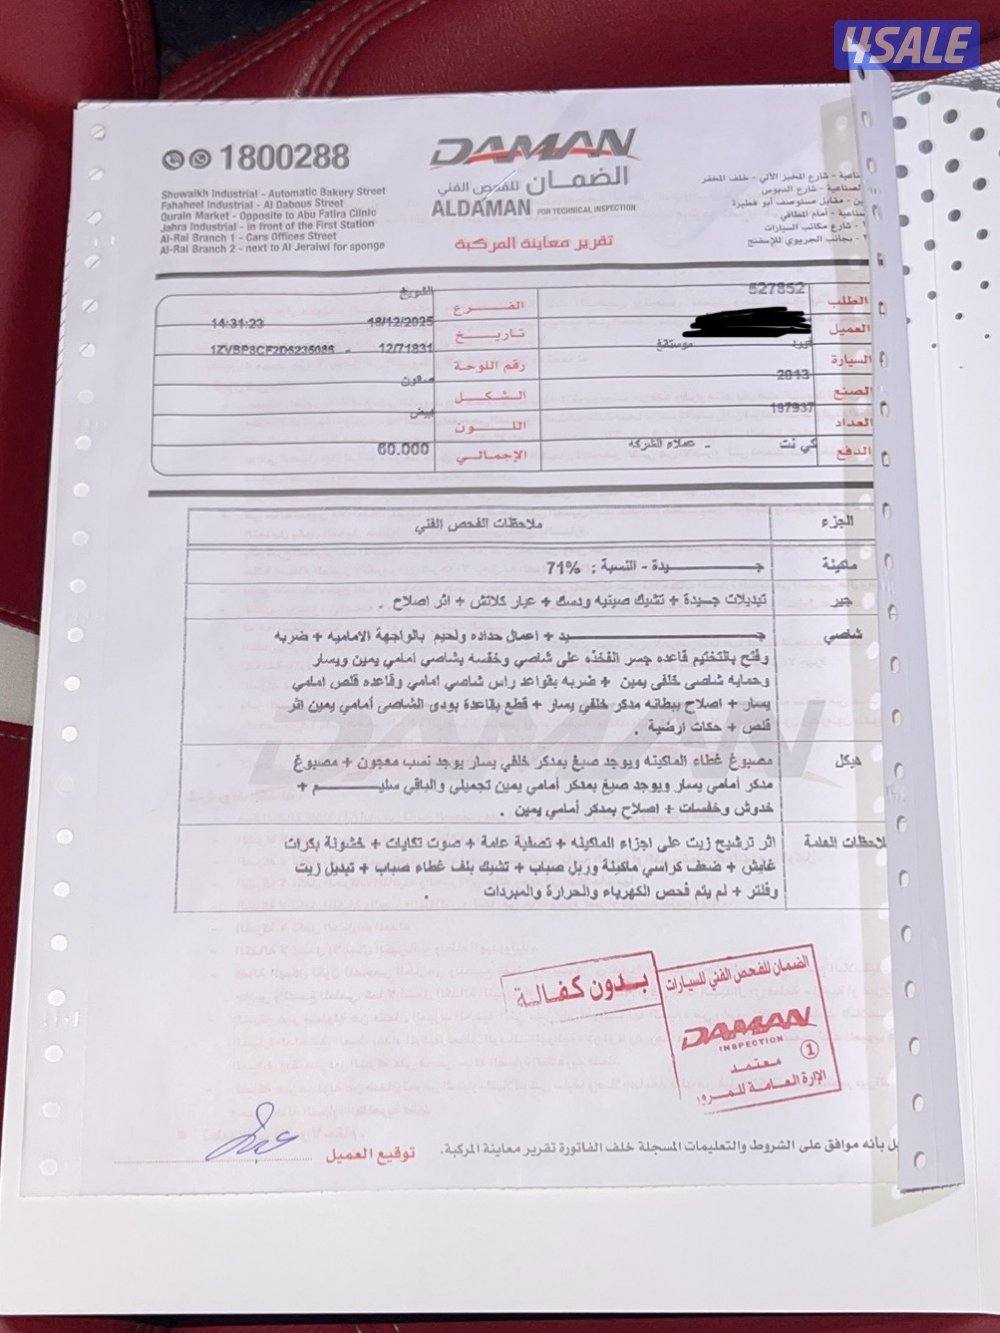 4SALE
1800288
DAMAN
الضمان للفحص الفني
ALDAMAN FOR TECHNICAL INSPECTION
تقرير معاينة المركبة
Shuwaikh Industrial - Automatic Bakery Street
Fahaheel Industrial - Al Dabous Street
Qurain Market - Opposite to Abu Fatira Clinic
Jahra Industrial - in front of the First Station
Al-Rai Branch 1 - Cars Offices Street
Al-Rai Branch 2 - next to Al Jeraiwi for sponge
شارع المخبز الآلي - خلف المخفر
شارع الدبوس
مقابل مستوصف أبو فطيرة
أمام المطافي
شارع مكاتب السيارات
بجانب الجريوي للإسفنج
الطلب 527852 الفرع الشويخ
العميل تاريخ 18/12/2025 14:31:23
السيارة فورد موستانغ رقم اللوحة 12/71831 - 1ZVBP8CF2D5235086
الصنع 2013 الشكل صالون
العداد 197937 اللون ابيض
الدفع كي نت - عملاء الشركه الإجمالي 60.000
الجزء ملاحظات الفحص الفني
ماكينة جيدة - النسبة : 71%
جير تبديلات جيدة + تشيك صينيه ودسك + عيار كلاتش + اثر اصلاح .
شاصي جيد + اعمال حداده ولحيم بالواجهة الاماميه + ضربه
وفتح بالتختيم قاعده جسر الفخذه على شاصي وخفسه بشاصي امامي يمين ويسار
وحمايه شاصي خلفي يمين + ضربه بقواعد راس شاصي امامي وقاعده قلص امامي
يسار + اصلاح ببطانه مدكر خلفي يسار + قطع بقاعدة بودى الشاصي أمامي يمين اثر
قلص + حكات ارضية .
هيكل مصبوغ غطاء الماكينه ويوجد صبغ بمدكر خلفي يسار يوجد نسب معجون + مصبوغ
مدكر أمامي يسار ويوجد صبغ بمدكر أمامي يمين تجميلي والباقي سليم +
خدوش وخفسات + اصلاح بمدكر امامي يمين .
ملاحظات العامة اثر ترشيح زيت على اجزاء الماكينه + تصفية عامة + صوت تكايات + خشونة بكرات
غايش + ضعف كراسي ماكينة وربل صباب + تشيك بلف غطاء صباب + تبديل زيت
وفلتر + لم يتم فحص الكهرباء والحرارة والمبردات .
بدون كفالة
الضمان للفحص الفني للسيارات
DAMAN
INSPECTION
معتمد 1
الإدارة العامة للمرور
بأنه موافق على الشروط والتعليمات المسجلة خلف الفاتورة تقرير معاينة المركبة. توقيع العميل